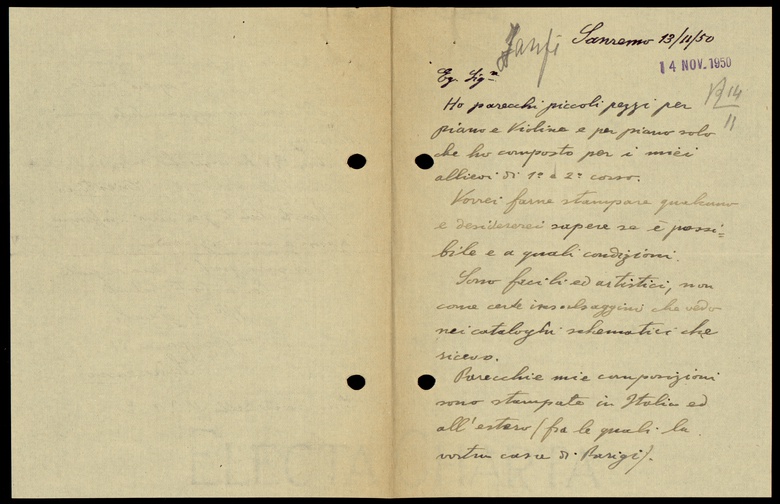 Sanremo 13/11/50
14 NOV. 1950
Eg. Sigʳ
14
11
Ho parecchi piccoli pezzi per
piano e violino e per piano solo
che ho composto per i miei
allievi di 1° e 2° corso.
Vorrei farne stampare qualcuno
e desidererei sapere se è possi=
bile e a quali condizioni.
Sono facili ed artistici, non
come certe insulsaggini che vedo
nei cataloghi schematici che
ricevo.
Parecchie mie composizioni
sono stampate in Italia ed
all'estero (fra le quali la
vostra casa di Parigi).